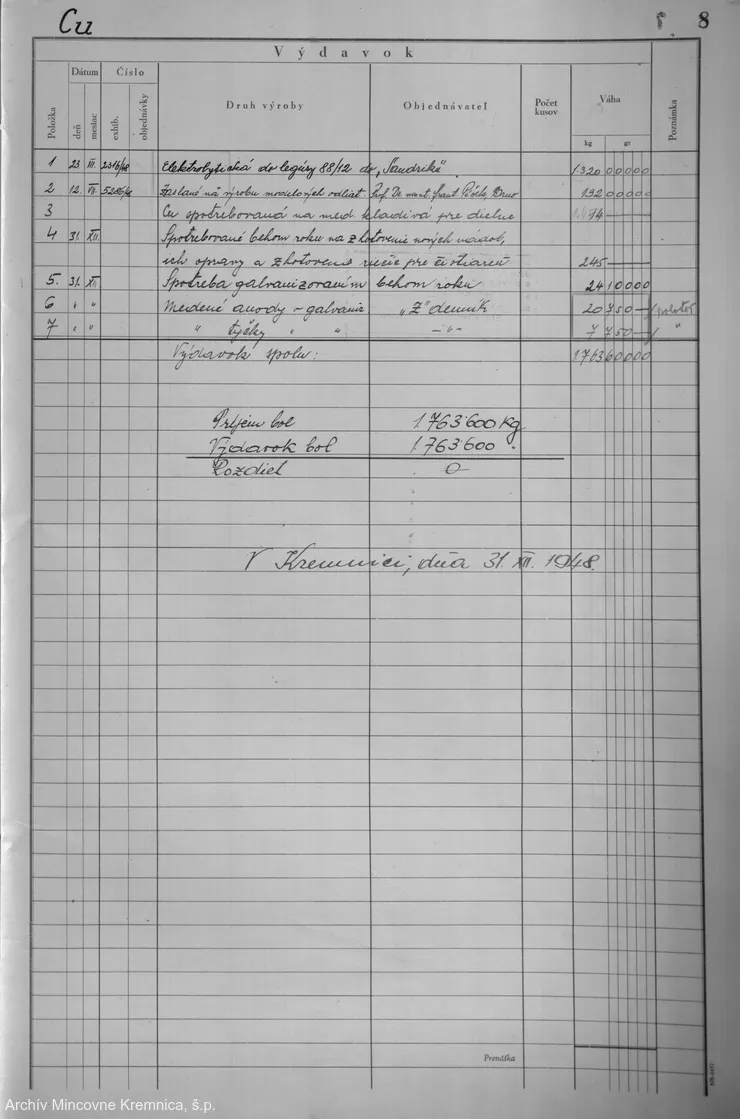 Cu
8
Výdavok
Položka
Dátum
deň
mesiac
Číslo
exhib.
objednávky
Druh výroby
Objednávateľ
Počet kusov
Váha
kg
gr
Poznámka
1 23. III. 2316/48 Elektrolytická do legúry 88/12 do „Sandrik" 1320 00000
2 12. VII. Zaslané na výrobu modelových odliat. Prof. Dr. mont. Frant. Brno 132 00000
3 Cu spotrebovaná na med. kladivá pre dielne 14 —
4 31. XII. Spotrebované behom roku na zhotovenie nových nádob,
ich opravy a zhotovenie pre čistiareň 245 —
5. 31. XII. Spotreba galvanizovaním behom roku 24 10000
6 " " Medené anody - galvania „Z" denník 20 750 — polotov
7 " " " tyčky " " — " — 7 750 — "
Výdavok spolu: 1763 60000
Príjem bol 1763·600 Kg
Výdavok bol 1763·600 "
Rozdiel 0
V Kremnici, dňa 31. XII. 1948.
Prenáška
Archív Mincovne Kremnica, š.p.